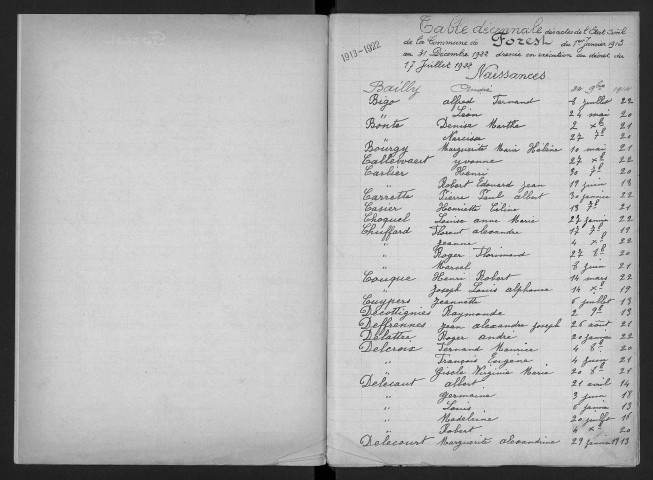 1913-1922
Table décennale des actes de l'Etat Civil
de la Commune de Forest du 1er janvier 1913
au 31 Décembre 1922 dressée en exécution du décret du
17 Juillet 1922
Naissances
Bailly André 22 9bre
Bigo Alfred Fernand 6 juillet 22
" Léon 24 mai 20
Bonte Denise Marthe 2 xb 21
" Narcisse 27 7b 20
Bourgy Marguerite Marie Hélène 10 mai 21
Callewaert Yvonne 27 xb 22
Carlier Henri 30 7b 20
" Robert Edouard Jean 19 juin 13
Carrette Pierre Paul Albert 30 janvier 22
Casier Henriette Céline 13 7b 21
Choquel Louise Anne Marie 27 janvier 22
Chuffard Florent Alexandre 17 7b 19
" Jeanne 4 xb 22
" Roger Florimond 27 8b 20
" Marcel 6 juin 21
Couque Henri Robert 14 mars 22
" Joseph Louis Alphonse 14 xb 19
Cuypers Jeannette 6 juillet 13
Décottignies Raymonde 2 9b 13
Deffrennes Jean Alexandre Joseph 26 août 21
Delattre Roger André 20 janvier 22
Delcroix Fernand Maurice 4 8b 20
" François Eugène 4 juin 21
" Gisèle Virginie Marie 20 8b 21
Delecaut Albert 21 avril 14
" Germaine 3 juin 18
" Louis 6 janvier 13
" Madeleine 20 juillet 16
" Robert 4 xb 20
Delecourt Marguerite Alexandrine 29 janvier 1913